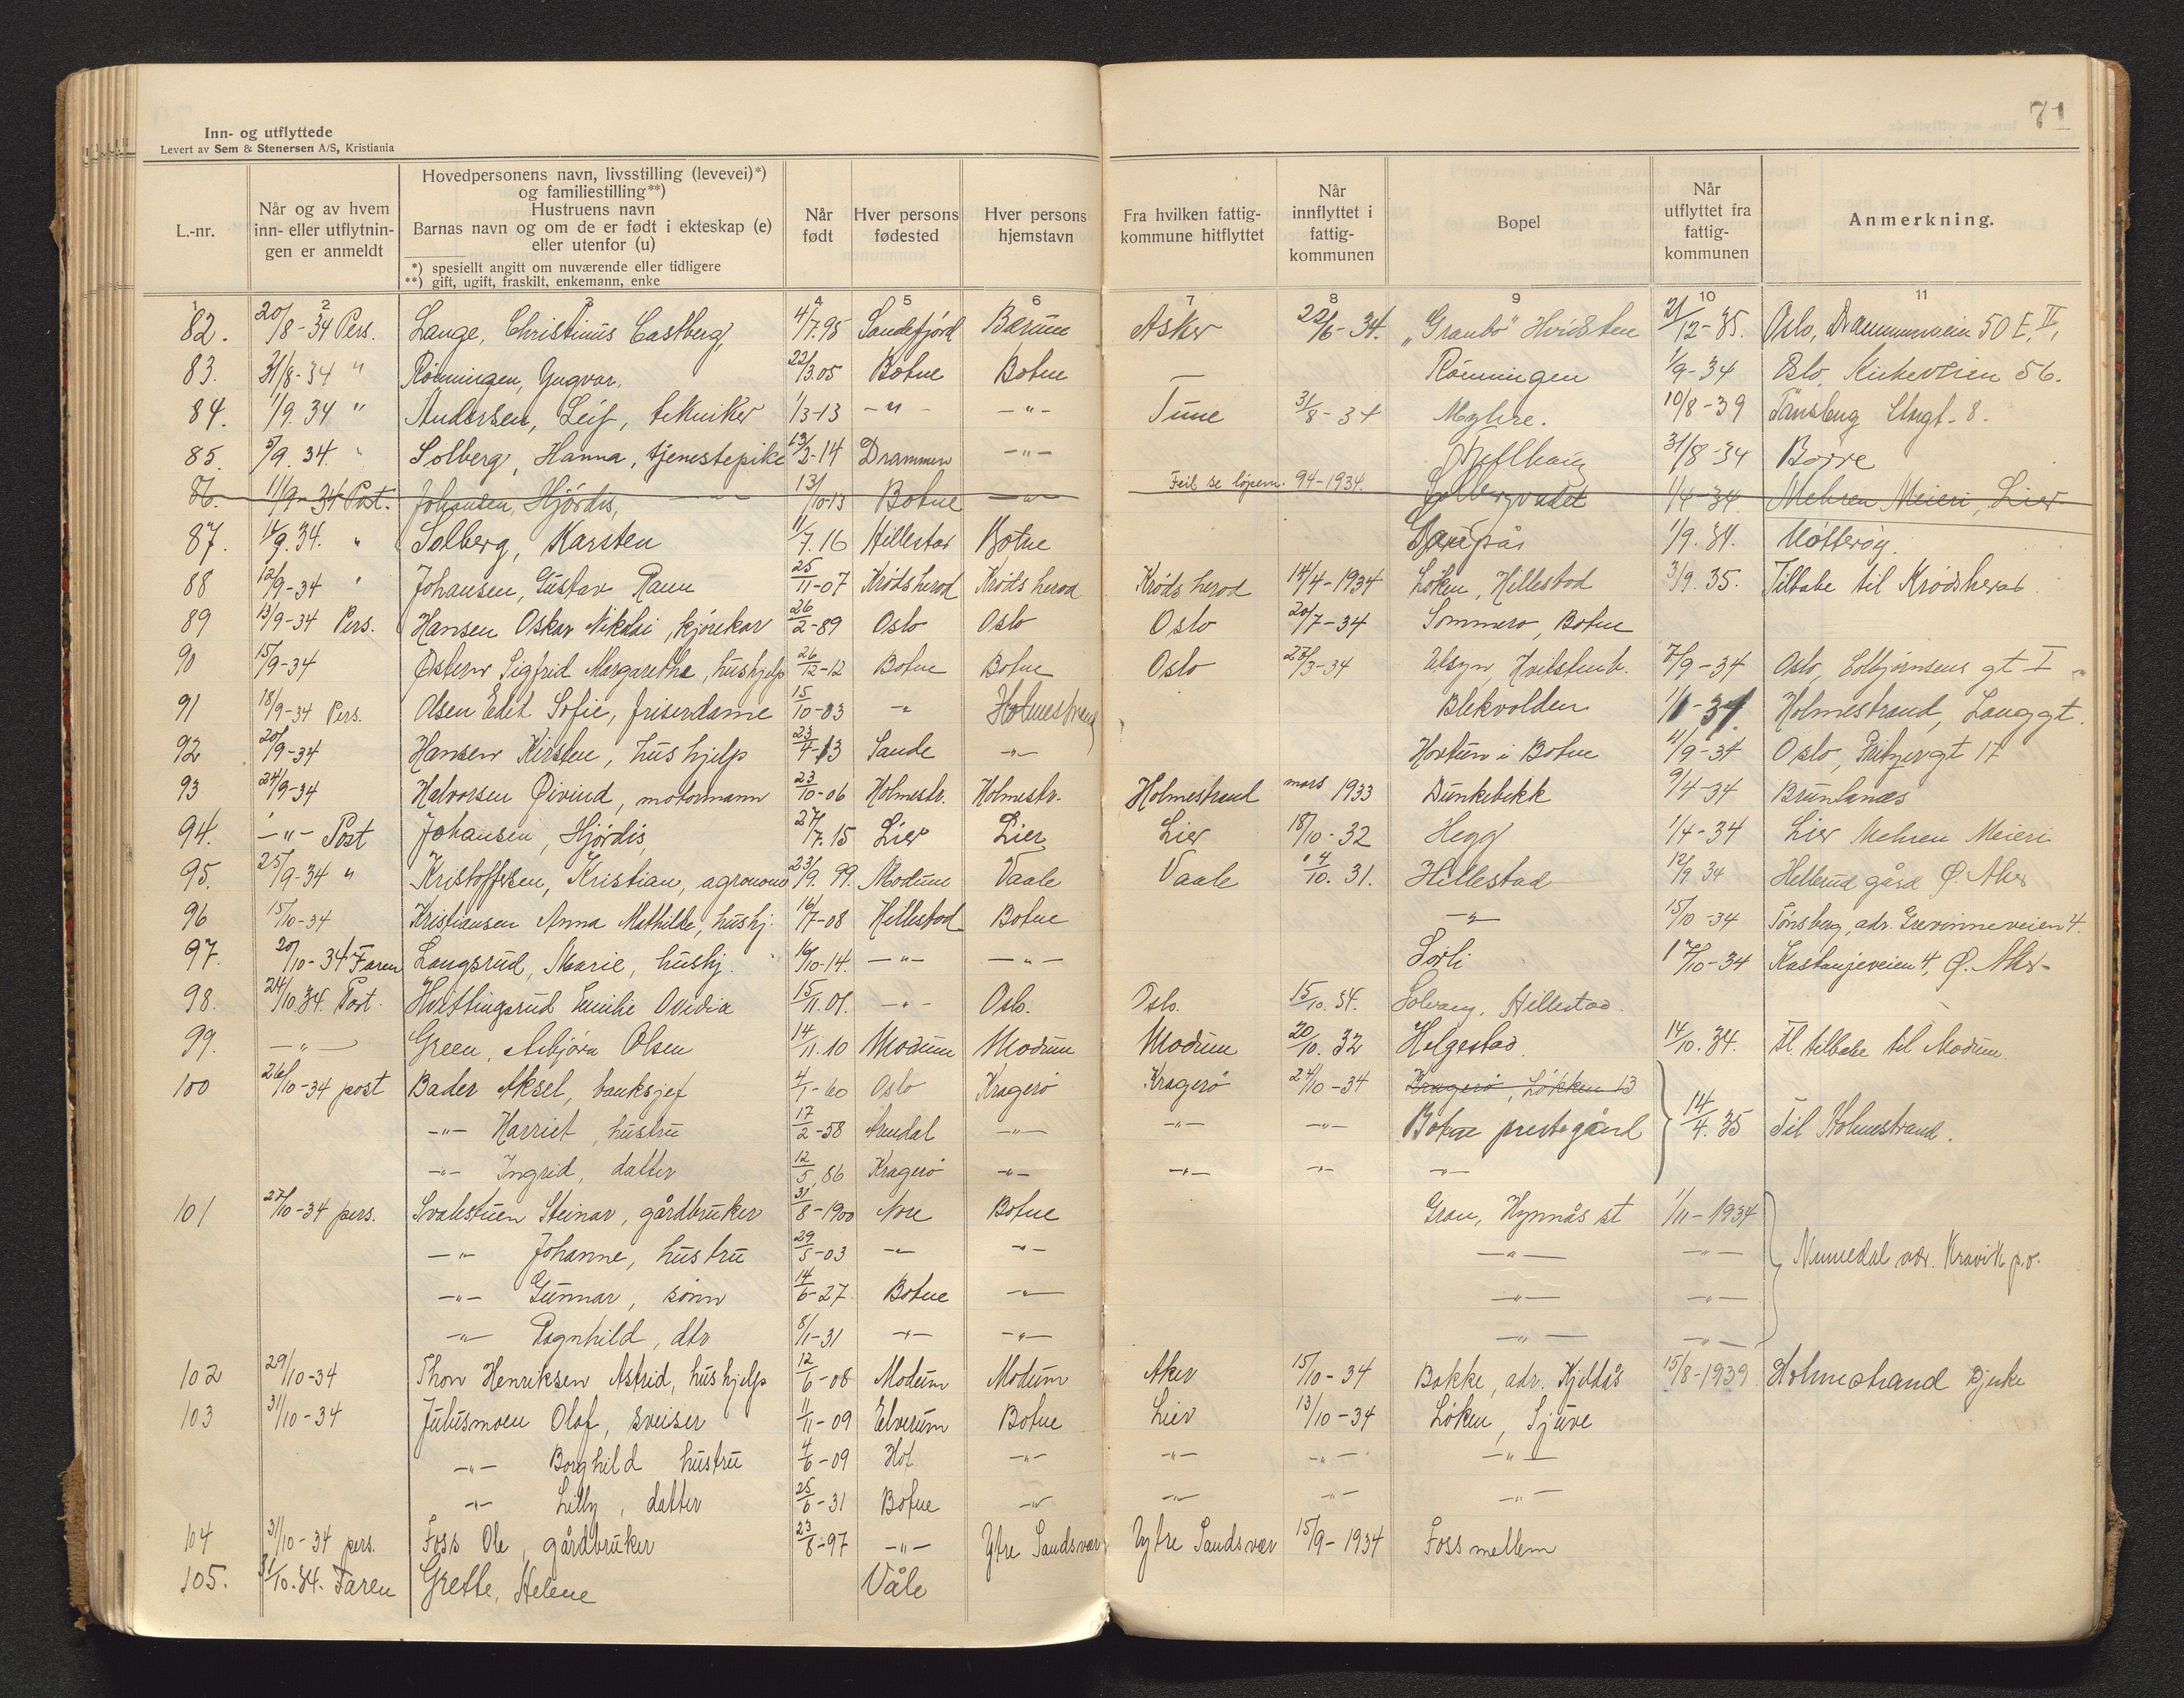 71
Inn- og utflyttede
Levert av Sem & Stenersen A/S, Kristiania
L.-nr.
Når og av hvem inn- eller utflytnin-gen er anmeldt
Hovedpersonens navn, livsstilling (levevei)*)
og familiestilling**)
Hustruens navn
Barnas navn og om de er født i ekteskap (e)
eller utenfor (u)
*) spesiellt angitt om nuværende eller tidligere
**) gift, ugift, fraskilt, enkemann, enke
Når født
Hver persons fødested
Hver persons hjemstavn
Fra hvilken fattig-kommune hitflyttet
Når innflyttet i fattig-kommunen
Bopel
Når utflyttet fra fattig-kommunen
Anmerkning.
1 2 3 4 5 6 7 8 9 10 11
82. 20/8-34 Pers. Lange, Christinus Castberg, 4/7.95 Sandefjord Bærum Asker 22/6-34. „Granbo" Hvidsten 21/12-35. Oslo, Drammensveien 50 E, II,
83. 31/8-34 " Rønningen, Yngvar. 22/3.05 Botne Botne — Rønningen 1/9-34 Oslo, Kirkeveien 56.
84. 1/9.34 " Andersen, Leif, tekniker 1/3-13 -"- -"- Tune 31/8-34 Myhre. 10/8-39 Tønsberg Stngt. 8.
85. 5/9.34. " Solberg, Hanna, tjenestepike 13/2-14 Drammen -"- 31/8-34 Borre
86. 11/9-34 Post. Johansen, Hjørdis, 13/10-13 Botne -"- Feil se løpenr. 94-1934. 1/4-34 Mehren Meieri, Lier
87. 14/9.34. " Solberg, Karsten 11/7.16 Hillestad Botne Gaupås 1/9.34. Nøtterøy.
88 12/9-34 " Johansen, Gustav Rann 25/11-07 Krødsherod Krødsherod Krødsherod 14/4-1934 Løken, Hillestad 3/9.35. Tilbake til Krødsherad.
89 13/9-34 Pers. Hansen Oskar Nikolai, kjørekar 26/2-89 Oslo Oslo Oslo 20/7-34 Sommero, Botne
90 15/9-34 Østern Sigfrid Margarethe, hushjelp 26/12-12 Botne Botne Oslo 27/3-34 Utsyn, Hvitstenb. 7/9-34 Oslo, Eilbjørnsens gt I
91 18/9-34 Pers. Olsen Edit Sofie, friserdame 15/10-03 -"- Holmestrand Blekvolden 1/1-34. Holmestrand, Langgt.
92 20/9-34 Hansen Kirsten, hushjelp 23/4-13 Sande -"- Hortun i Botne 11/9-34 Oslo, gt 17
93 24/9-34 Halvorsen Øivind, motormann 23/10-06 Holmestr. Holmestr. Holmestrand mars 1933 Dunkebekk 9/4-34 Brunlanes
94. -"- Post Johansen, Hjørdis, 27/7.15 Lier Lier Lier 18/10-32 Hegg 1/4-34 Lier Mehren Meieri
95. 25/9-34 " Kristoffersen, Kristian, agronom 23/9.99. Modum Vaale Vaale 14/10.31. Hillestad 12/9 34 Hellerud gård Ø. Aker
96 15/10-34 Kristiansen Anna Mathilde, hushj. 16/7-08 Hillestad Botne -"- 15/10-34 Tønsberg, adr. Grevinneveien 4.
97. 20/10-34 Faren Langsrud, Marie, hushj. 16/10-14. -"- -"- Sørli 17/10-34 Kastanjeveien 4, Ø. Aker-
98. 24/10.34. Post. Hvittingsrud Emilie Ovidia 15/11.01. -"- Oslo. Oslo. 15/10.34. Solvang, Hillestad.
99. -"- Green, Asbjørn Olsen 14/11.10 Modum Modum Modum 20/10.32 Helgestad. 14/10.34. Fl. tilbake til Modum.
100 26/10-34 post Bader Aksel, banksjef 4/1-60 Oslo Kragerø Kragerø 24/10-34 Kragerø, Løkken 13
-"- Harriet, hustru 17/2-58 Arendal -"- -"- -"- Botne prestegård 14/4.35 Til Holmestrand.
-"- Ingrid, datter 12/5.86 Kragerø -"- -"- -"- -"-
101 27/10-34 pers. Svalestuen Steinar, gårdbruker 31/8-1900 Nore Botne Gran, Hynnås st 1/11-1934
-"- Johanne, hustru 29/5-03 -"- -"- -"- -"- Numedal adr. Kravik p.o.
-"- Gunnar, sønn 14/6-27 Botne -"- -"- -"-
-"- Ragnhild, dtr 8/1-31 -"- -"- -"- -"-
102 29/10-34 Thon Henriksen Astrid, hushjelp 12/6-08 Modum Modum Aker 15/10-34 Bakke, adr. Kjeldås 15/8-1939 Holmestrand
103 31/10-34 Julusmoen Olaf, sveiser 11/11-09 Elverum Botne Lier 13/10-34 Løken, Sjuve
-"- Borghild hustru 4/6-09 Hof -"- -"- -"- -"-
-"- Lilly, datter 25/6-31 Botne -"- -"- -"- -"-
104 31/10-34 pers. Foss Ole, gårdbruker 23/8-97 -"- Ytre Sandsvær Ytre Sandsvær 15/9-1934 Foss mellem
105. 31/10.34. Faren Grette, Helene Våle